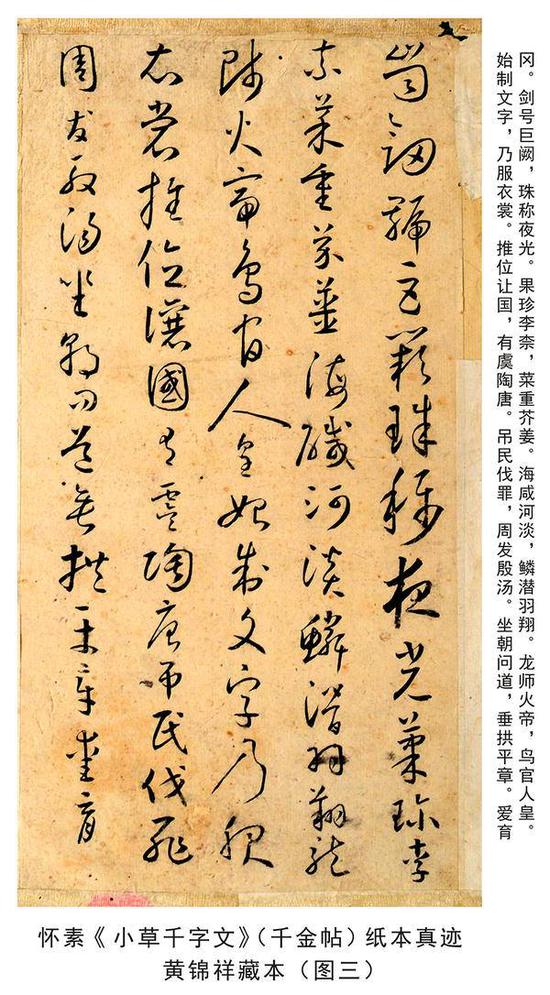 冈。剑号巨阙，珠称夜光。果珍李柰，菜重芥姜。海咸河淡，鳞潜羽翔。龙师火帝，鸟官人皇。
始制文字，乃服衣裳。推位让国，有虞陶唐。吊民伐罪，周发殷汤。坐朝问道，垂拱平章。爱育
崗劒號巨闕珠稱夜光菓珍李
柰菜重芥薑海醎河淡鱗潛羽翔龍
師火帝鳥官人皇始制文字乃服
衣裳推位讓國有虞陶唐弔民伐罪
周發殷湯坐朝問道垂拱平章愛育
怀素《小草千字文》（千金帖）纸本真迹
黄锦祥藏本（图三）